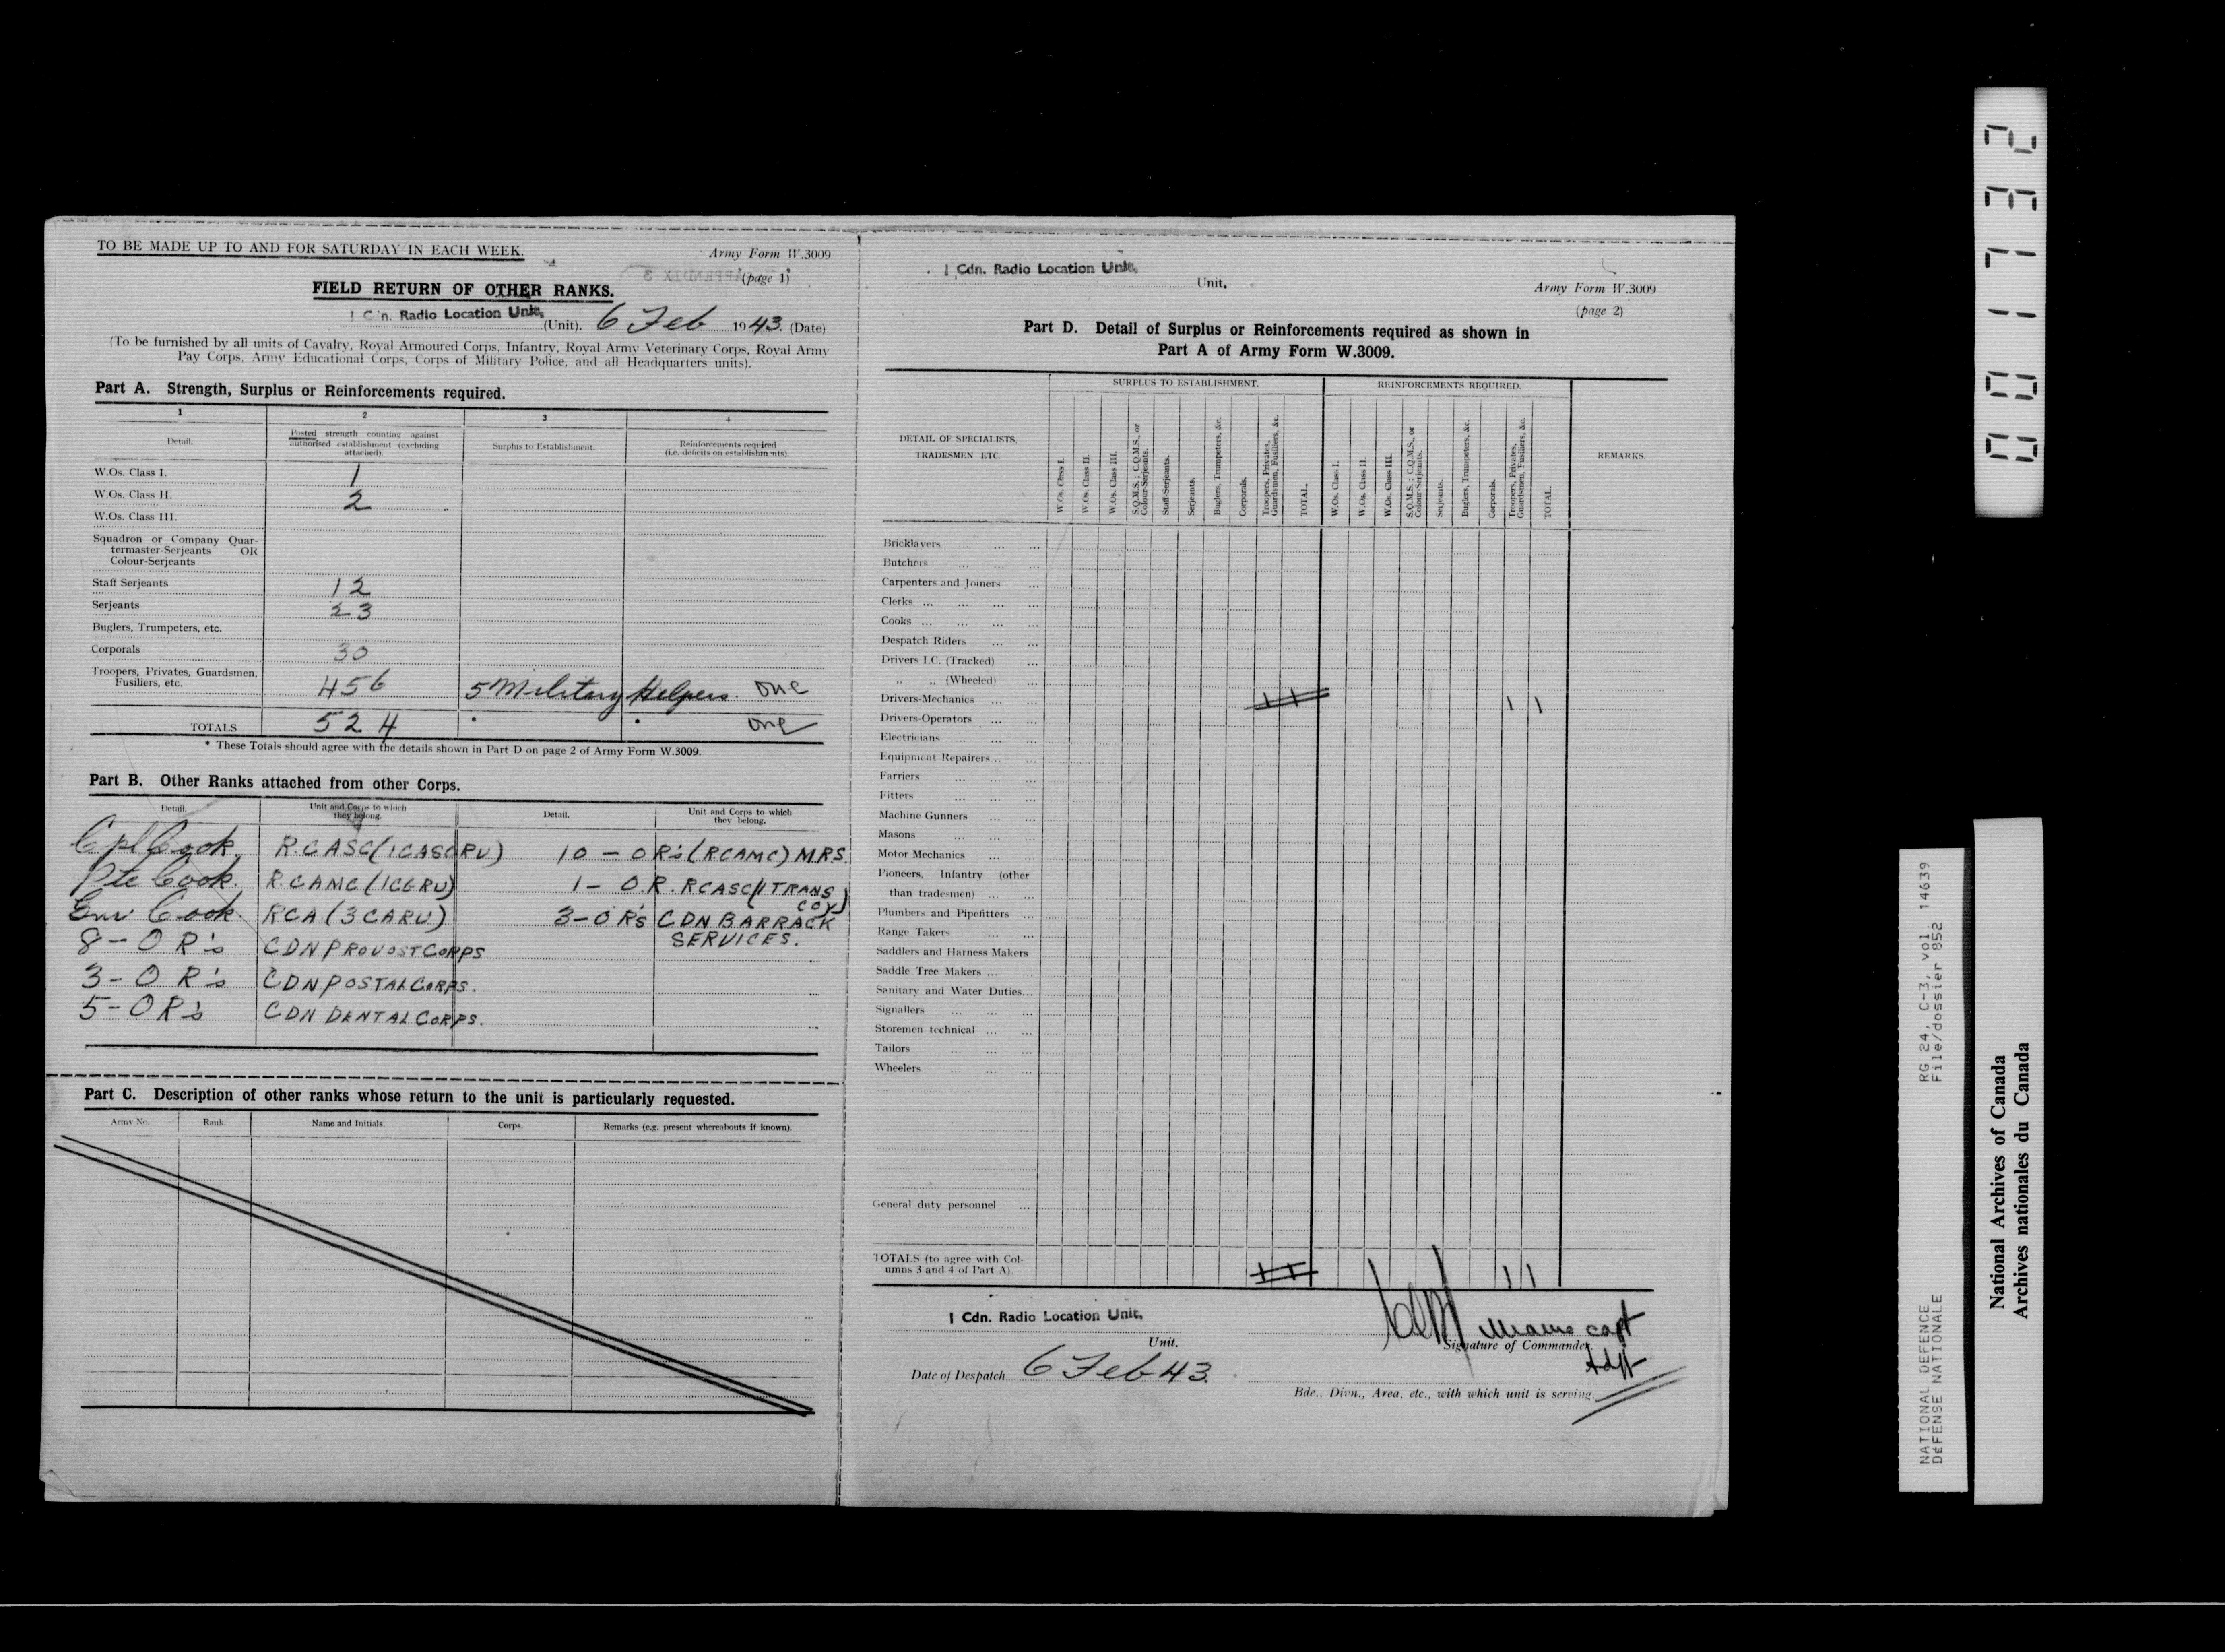 TO BE MADE UP TO AND FOR SATURDAY IN EACH WEEK.
Army Form W.3009
(page 1)
APPENDIX 3
FIELD RETURN OF OTHER RANKS.
1 C'n. Radio Location Unit, (Unit). 6 Feb 1943. (Date)
(To be furnished by all units of Cavalry, Royal Armoured Corps, Infantry, Royal Army Veterinary Corps, Royal Army
Pay Corps, Army Educational Corps, Corps of Military Police, and all Headquarters units).
Part A. Strength, Surplus or Reinforcements required.
1 2 3 4
Detail. Posted strength counting against authorised establishment (excluding attached). Surplus to Establishment. Reinforcements required (i.e. deficits on establishments).
W.Os. Class I. 1
W.Os. Class II. 2
W.Os. Class III.
Squadron or Company Quar-
termaster-Serjeants OR
Colour-Serjeants
Staff Serjeants 12
Serjeants 23
Buglers, Trumpeters, etc.
Corporals 30
Troopers, Privates, Guardsmen,
Fusiliers, etc. 456 5 Military Helpers. one
TOTALS 524 * * one
* These Totals should agree with the details shown in Part D on page 2 of Army Form W.3009.
Part B. Other Ranks attached from other Corps.
Detail. Unit and Corps to which they belong. Detail. Unit and Corps to which they belong.
Cpl Cook. R.C.ASC (1 CASCRU) 10 - O R's (RCAMC) M.R.S.
Pte Cook. R.C.AMC (1CGRU) 1 - O.R. RCASC (1 TRANS COY)
Gnr Cook. RCA (3 CARU) 3 - O R's CDN BARRACK SERVICES.
8 - O R's CDN PROVOST CORPS
3 - O R's CDN POSTAL CORPS.
5 - O R's CDN DENTAL CORPS.
Part C. Description of other ranks whose return to the unit is particularly requested.
Army No. Rank. Name and Initials. Corps. Remarks (e.g. present whereabouts if known).
1 Cdn. Radio Location Unit,
Unit.
Army Form W.3009
(page 2)
Part D. Detail of Surplus or Reinforcements required as shown in
Part A of Army Form W.3009.
DETAIL OF SPECIALISTS, TRADESMEN ETC.
SURPLUS TO ESTABLISHMENT.
W.Os. Class I.
W.Os. Class II.
W.Os. Class III.
S.Q.M.S.; C.Q.M.S., or Colour-Serjeants.
Staff-Serjeants.
Serjeants.
Buglers, Trumpeters, &c.
Corporals.
Troopers, Privates, Guardsmen, Fusiliers, &c.
TOTAL.
REINFORCEMENTS REQUIRED.
W.Os. Class I.
W.Os. Class II.
W.Os. Class III.
S.Q.M.S.; C.Q.M.S., or Colour-Serjeants.
Serjeants.
Buglers, Trumpeters, &c.
Corporals.
Troopers, Privates, Guardsmen, Fusiliers, &c.
TOTAL.
REMARKS.
Bricklayers ... ...
Butchers ... ...
Carpenters and Joiners ...
Clerks ... ... ... ...
Cooks ... ... ... ...
Despatch Riders ... ...
Drivers I.C. (Tracked) ...
,, ,, (Wheeled) ...
Drivers-Mechanics ... ... 1 1 1 1
Drivers-Operators ... ...
Electricians ... ... ...
Equipment Repairers... ...
Farriers ... ... ...
Fitters ... ... ...
Machine Gunners ... ...
Masons ... ... ...
Motor Mechanics ... ...
Pioneers, Infantry (other
than tradesmen) ... ...
Plumbers and Pipefitters ...
Range Takers ... ...
Saddlers and Harness Makers
Saddle Tree Makers ... ...
Sanitary and Water Duties...
Signallers ... ... ...
Storemen technical ... ...
Tailors ... ... ...
Wheelers ... ... ...
General duty personnel ...
TOTALS (to agree with Col-
umns 3 and 4 of Part A) 1 1 1 1
1 Cdn. Radio Location Unit,
Unit.
capt
Signature of Commander.
Adjt
Date of Despatch 6 Feb 43.
Bde., Divn., Area, etc., with which unit is serving.
001732
RG 24, C-3, vol. 14639
File/dossier 852
NATIONAL DEFENCE
DÉFENSE NATIONALE
National Archives of Canada
Archives nationales du Canada